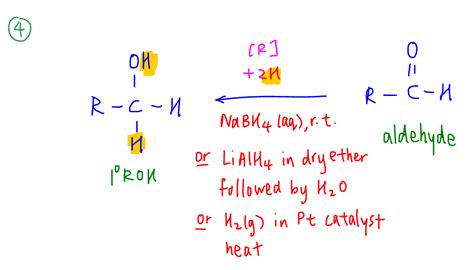 ④
OH
R - C - H
H
1° ROH
[R]
+2H
NaBH4 (aq), r.t.
or LiAlH4 in dry ether
followed by H2O
or H2(g) in Pt catalyst
heat
O
R - C - H
aldehyde